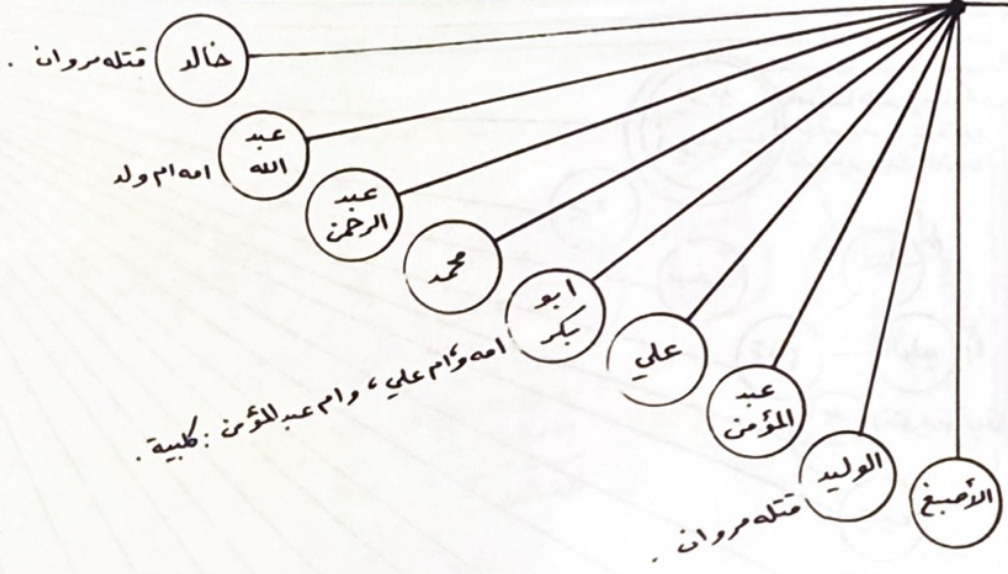 خالد
قتله مروان .
عبد
الله
امه ام ولد
عبد
الرحمن
محمد
ابو
بكر
امه وأم علي ، وام عبد المؤمن : كلبية .
علي
عبد
المؤمن
الوليد
قتله مروان .
الأصبغ